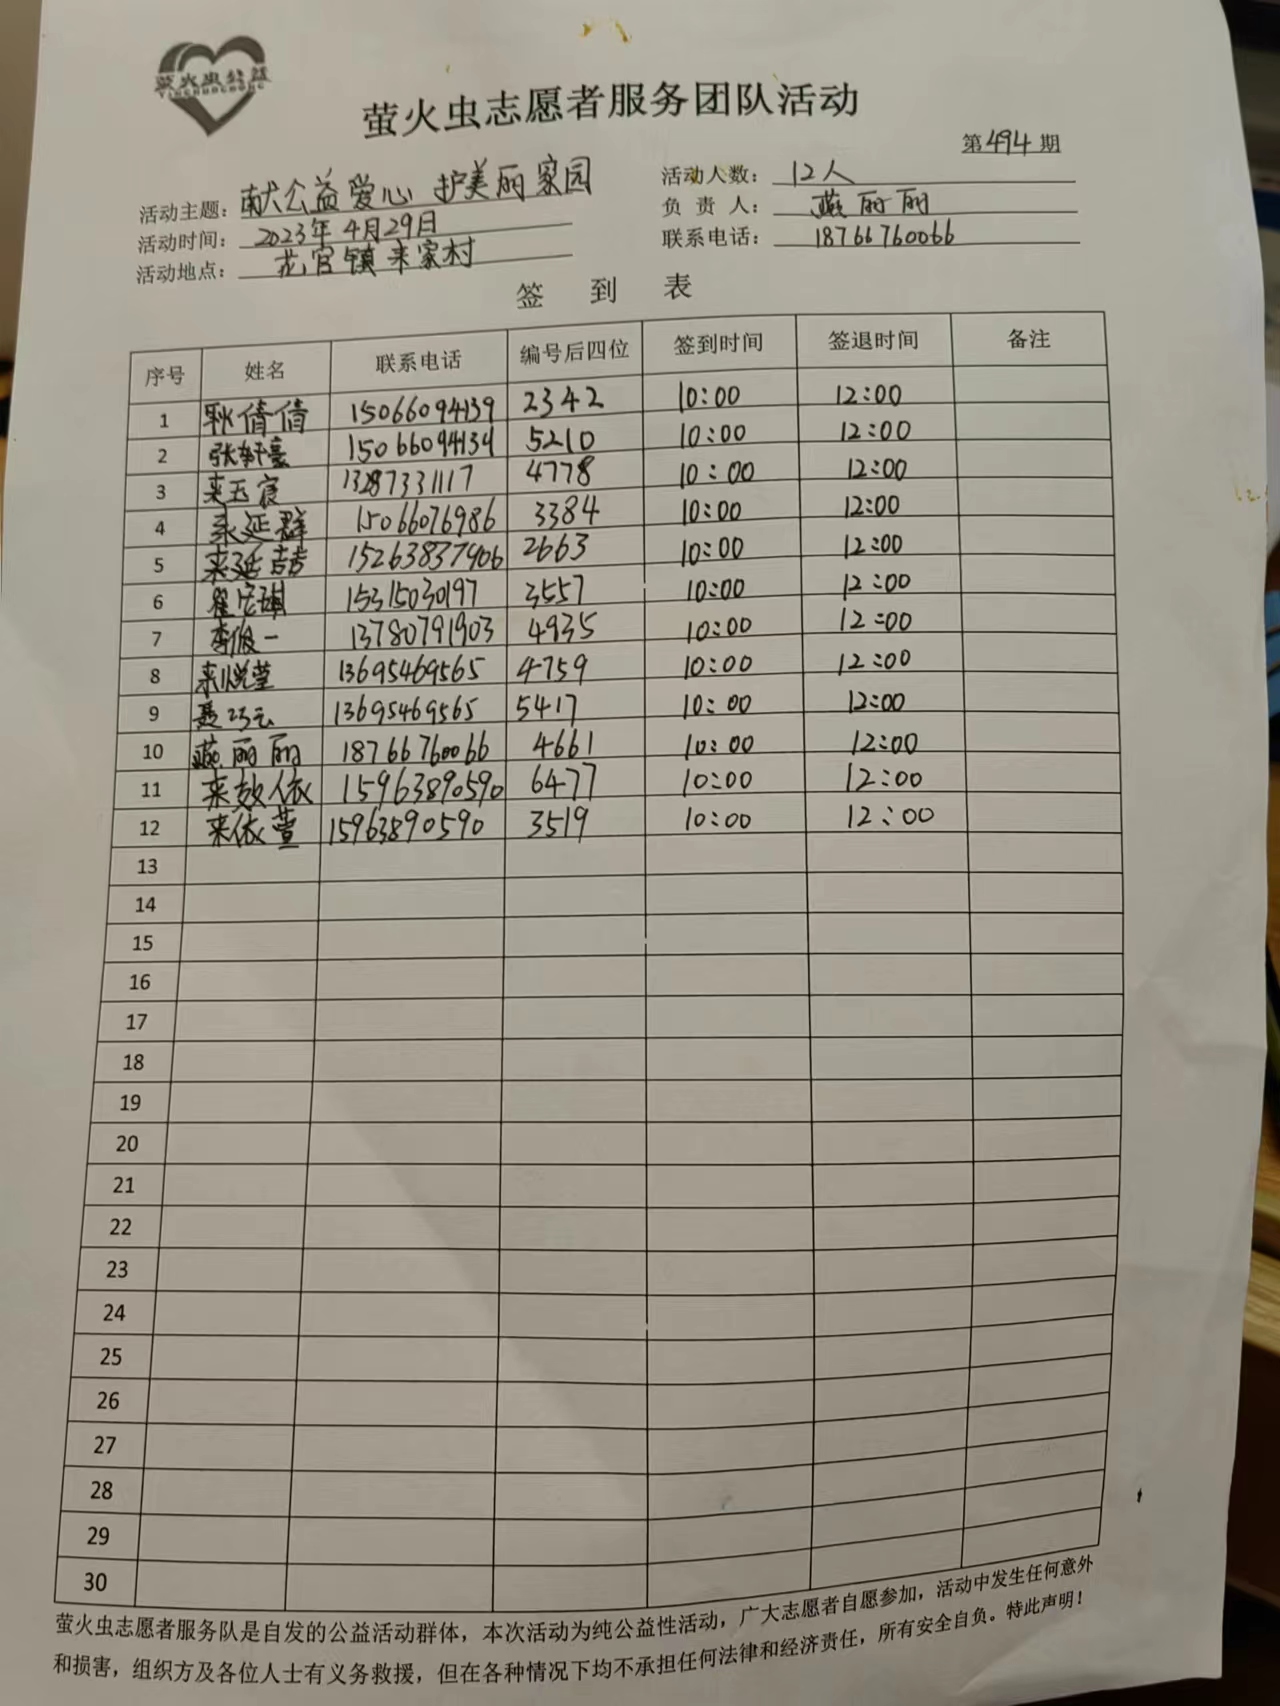 萤火虫公益
YINGHUOCHONG
萤火虫志愿者服务团队活动
第494期
活动主题：献公益爱心 护美丽家园
活动人数：12人
活动时间：2023年4月29日
负责人：燕丽丽
活动地点：花官镇来家村
联系电话：18766760066
签到表
序号 姓名 联系电话 编号后四位 签到时间 签退时间 备注
1 倩倩 15066094139 2342 10:00 12:00
2 张轩豪 15066094139 5210 10:00 12:00
3 来玉宸 13287331117 4778 10:00 12:00
4 来延群 15066076986 3384 10:00 12:00
5 来延喆 15263837906 2663 10:00 12:00
6 15315030197 3557 10:00 12:00
7 李俊一 13780791903 4935 10:00 12:00
8 来悦莹 13695469565 4759 10:00 12:00
9 聂巧元 13695469565 5417 10:00 12:00
10 燕丽丽 18766760066 4661 10:00 12:00
11 来效依 15963890590 6477 10:00 12:00
12 来依萱 15963890590 3519 10:00 12:00
13
14
15
16
17
18
19
20
21
22
23
24
25
26
27
28
29
30
萤火虫志愿者服务队是自发的公益活动群体，本次活动为纯公益性活动，广大志愿者自愿参加，活动中发生任何意外
和损害，组织方及各位人士有义务救援，但在各种情况下均不承担任何法律和经济责任，所有安全自负。特此声明！